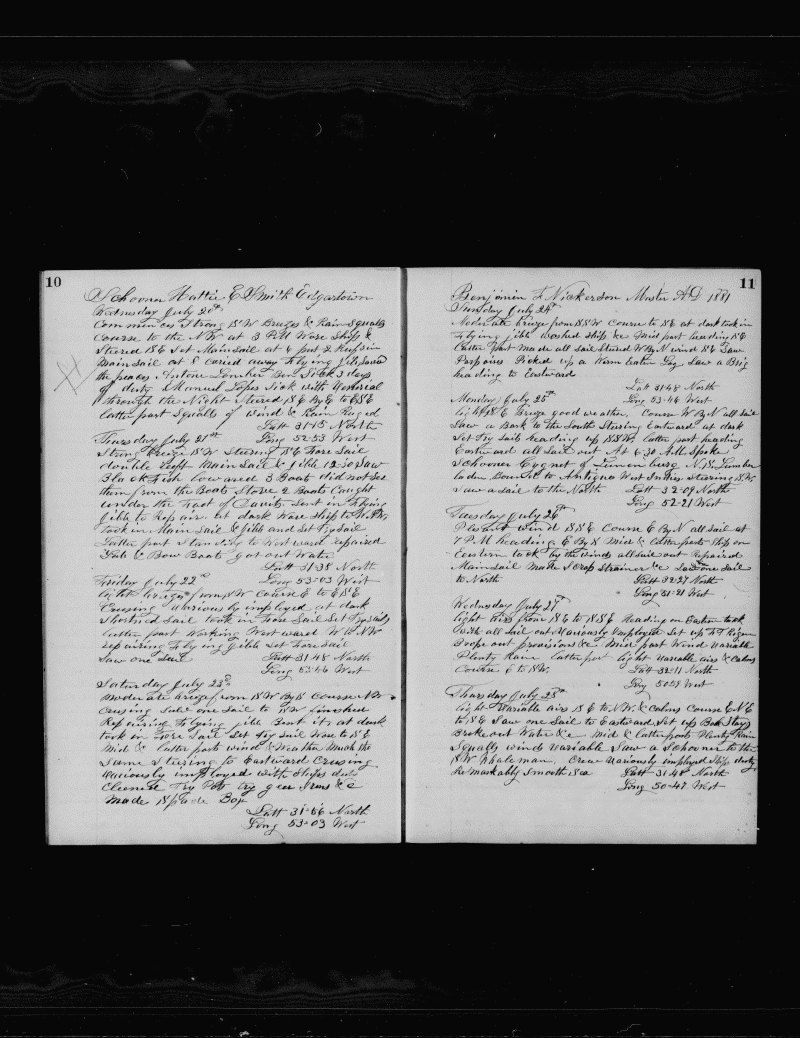 10
Schooner Hattie E Smith Edgartown
Wednesday July 20th
Commences Strong SW Breezes & Rain Squalls
Course to the NW at 3 PM Wore Ship &
Steered SE Set Mainsail at 4 put 2 Reefs in
Main Sail at 5 Caried away Flying jib Saved
the peaces Antone 3 days
of duty Manuel Lopes Sick with Venereal
through the Night Steered SE By E to ESE
latter part Squalls of wind & Rain Ruged
Latt 31-15 North
Long 52-53 West
Thursday July 21st
Strong Breeze SW Steering SE Fore Sail
double Reeft Main Sail & jibb 12-30 Saw
Black Fish lowared 3 Boats did not See
them from the Boats Stove 2 Boats Caught
under the foot of Davits Sent in Flying
jibb to Rep air at dark Wore Ship to W.N.W.
took in Main Sail & jibb and Set Try Sail
Latter part Standing to West ward repaired
& Bow Boats got out Water
Latt 31-38 North
Long 53-03 West
Friday July 22nd
light breezes from SW Course E to ESE
Crusing variously imployed at dark
Shortned Sail took in Fore Sail Set Try sails
latter part Working West ward W to NW
repairing Flying jibb Set Fore Sail
Saw one Sail
Latt 31-48 North
Long 53-46 West
Saturday July 23rd
Moderate breeze from SW By S Course NW
Crusing Saw one Sail to SW finished
Repairing Flying jibb Bent it at dark
took in Fore Sail Set Try Sail Wore to SE
Mid & latter parts wind & Weather Much the
Same Steering to Eastward Crusing
Variously imployed with Ships duty
Cleened Try Pots try gear Irons &c
Made Spade Box
Latt 31-56 North
Long 53-03 West
11
Benjamin F Nickerson Master AD 1881
Sunday July 24th
Moderate breeze from SSW Course to SE at dark took in
Flying jibb Washed Ship &c Mid part heading SE
Latter Part Made all Sail Steered W By N wind SE Saw
Porpoises Picked up a Worm Eaten Log Saw a Brig
heading to Eastward
Latt 31-48 North
Long 53-46 West
Monday July 25th
Light SE Breeze good weather. Course W By N all Sail
Saw a Bark to the South Steering Eastward at dark
Set Try Sails heading up SSW. latter part heading
Eastward all Sail out At 6-30 A.M. Spoke
Schooner Cygnet of Lunenburg N.S. Lumber
laden Bound to Antigua West Indies Steering SW.
Saw a sail to the North
Latt 32-09 North
Long 52-21 West
Tuesday July 26th
Pleasant wind SSE Course E By N all sail at
7 P.M. heading E By N Mid & Latter parts Ship on
Eastern tack by the winds all sail out Repaired
Main Sail Made Scrap Strainer &c Saw one Sail
to North
Latt 32-27 North
Long 51-21 West
Wednesday July 27th
light airs from SE to SSE Heading on Eastern tack
With all Sail out Variously Employed Set up F.T. Rigen
Broke out provisions &c Mid part Wind variable
Plenty Rain latter part light variable airs & Calms
Course E to SW.
Latt 32-11 North
Long 50-59 West
Thursday July 28th
light Variable airs SE to NW. & Calms Course ENE
to SE Saw one Sail to Eastward Set up Bob Stays
Broke out Water &c Mid & latter parts Plenty Rain
Squally winds variable Saw a Schooner to the
SW Whaleman. Crew Variously imployed Ships duty
Remarkably Smooth Sea
Latt 31-48 North
Long 50-47 West